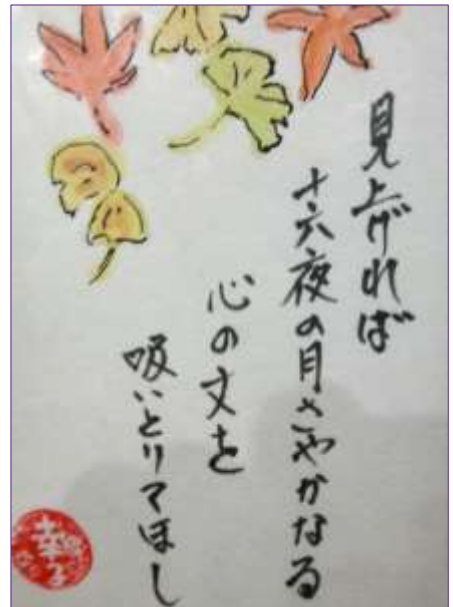 見上げれば
十六夜の月さやかなる
心の文を
吸いとりてほし
幸子